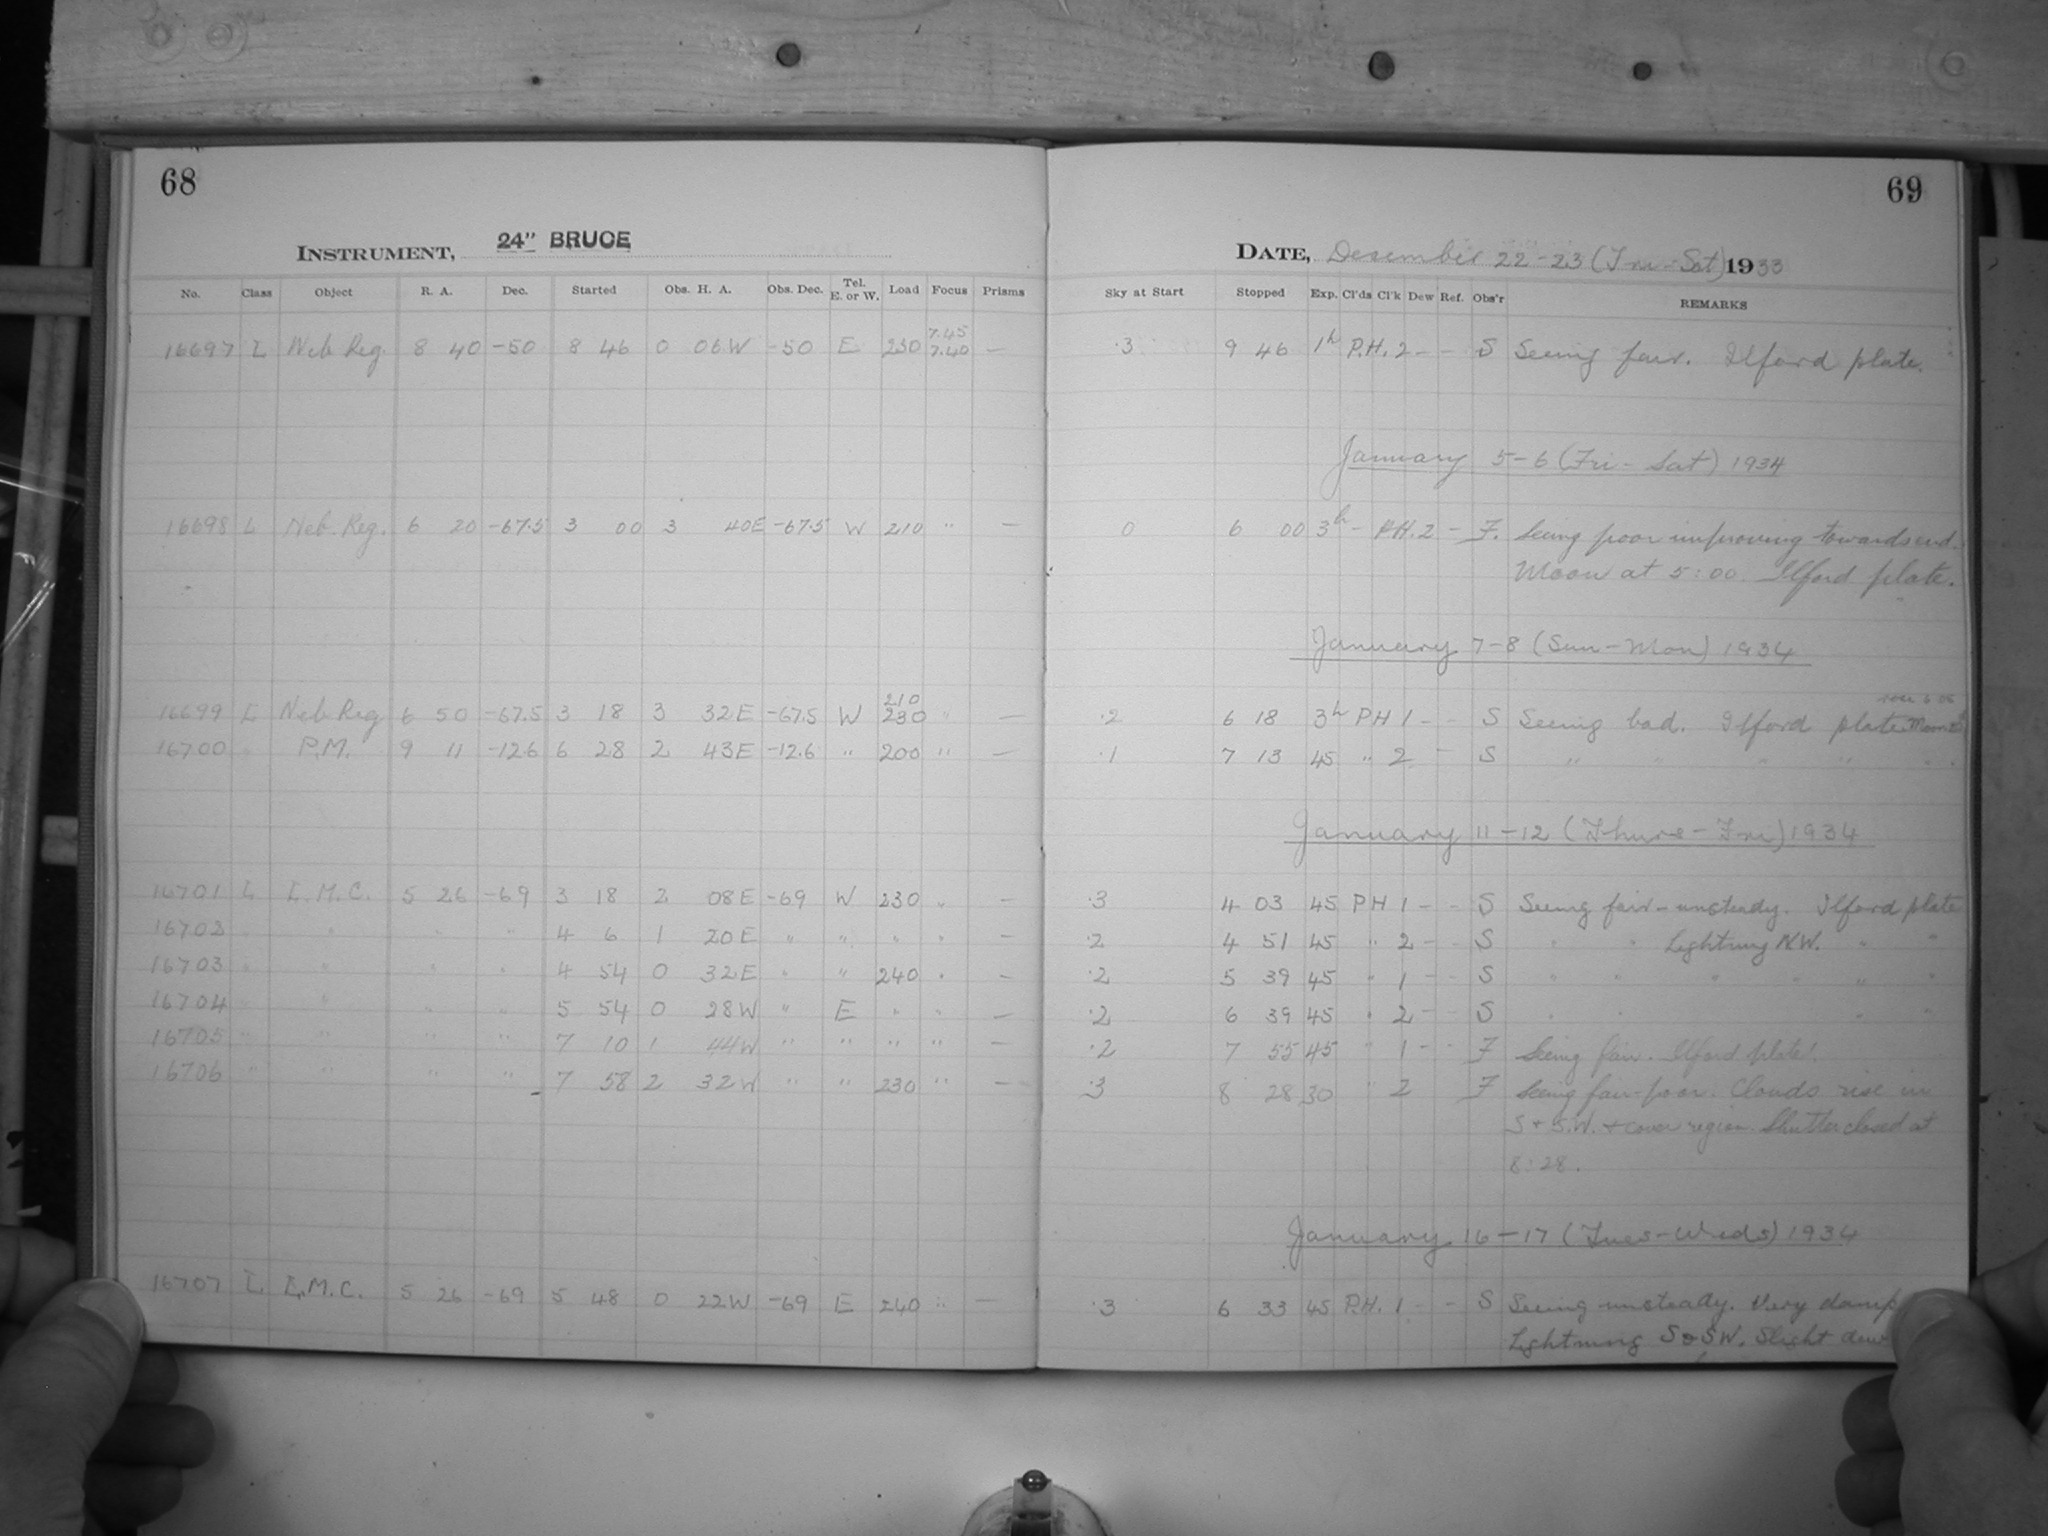 68
69
INSTRUMENT, 24" BRUCE
DATE, December 22-23 (Fri-Sat) 1933
No. Class Object R. A. Dec. Started Obs. H. A. Obs. Dec. Tel. E. or W. Load Focus Prisms Sky at Start Stopped Exp. Cl'ds Cl'k Dew Ref. Obs'r REMARKS
7.45
16697 L Neb Reg. 8 40 -50 8 46 0 06W -50 E 230 7.40 — .3 9 46 1h P.H. 2 - - S Seeing fair. Ilford plate.
January 5-6 (Fri-Sat) 1934
16698 L Neb. Reg. 6 20 -67.5 3 00 3 40E -67.5 W 210 " — 0 6 00 3h - P.H. 2 - F. Seeing poor improving towards end.
Moon at 5:00. Ilford plate.
January 7-8 (Sun-Mon) 1934
210
16699 L Neb Reg 6 50 -67.5 3 18 3 32E -67.5 W 230 " — .2 6 18 3h PH 1 - - S Seeing bad. Ilford plate. Moon
16700 " P.M. 9 11 -12.6 6 28 2 43E -12.6 " 200 " — .1 7 13 45 " 2 - S " " " " "
January 11-12 (Thurs-Fri) 1934
16701 L L.M.C. 5 26 -69 3 18 2 08E -69 W 230 " — .3 4 03 45 PH 1 - - S Seeing fair-unsteady. Ilford plate
16702 " " " " 4 6 1 20E " " " " — .2 4 51 45 " 2 - - S " " Lightning N.W. " "
16703 " " " " 4 54 0 32E " " 240 " — .2 5 39 45 " 1 - - S " " " " " "
16704 " " " " 5 54 0 28W " E " " — .2 6 39 45 " 2 - - S " " " "
16705 " " " " 7 10 1 44W " " " " — .2 7 55 45 " 1 - - F Seeing fair. Ilford plate.
16706 " " " " 7 58 2 32W " " 230 " — .3 8 28 30 " 2 F Seeing fair-poor. Clouds rise in
S + S.W. + cover region. Shutter closed at
8:28.
January 16-17 (Tues-Weds) 1934
16707 L L.M.C. 5 26 -69 5 48 0 22W -69 E 240 " — .3 6 33 45 P.H. 1 - - S Seeing unsteady. Very damp
Lightning S & SW. Slight dew